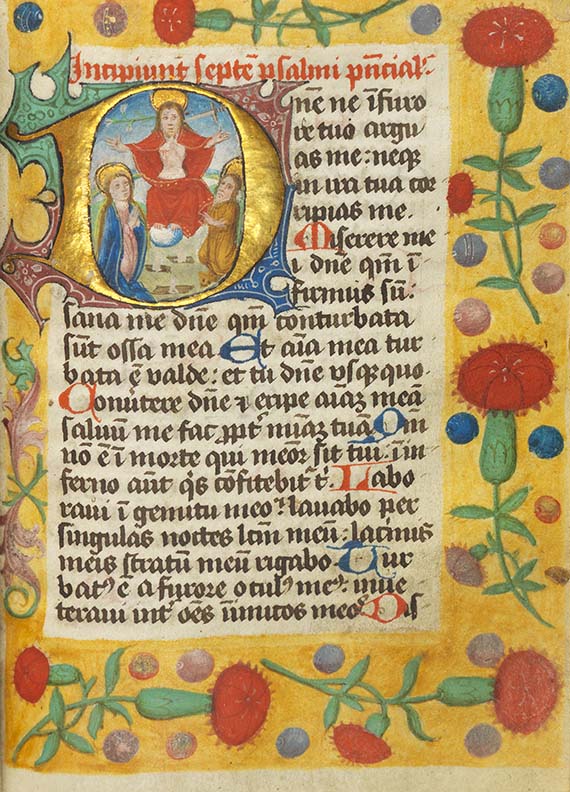 Incipiunt septē psalmi pn̄cial᷑.
Dn̄e ne ī furo
re tuo argu
as me: neq̄
in ira tua cor
ripias me.
Miserere me
i dn̄e qm̄ ī
firmus sū:
sana me dn̄e qm̄ conturbata
sūt ossa mea Et aīa mea tur
bata ē valde: et tu dn̄e vsq̄ quo.
Conūtere dn̄e ⁊ eripe aīaȝ meā
saluum me fac ꝓpt᷑ mīaȝ tuā Qm̄
nō ē ī morte qui meor᷑ sit tui: ī in
ferno aūt q̄s cōfitebit᷑ t᷑. Labo
raui ī gemitu meo: lauabo per
singulas noctes lc̄m meū: lacrimis
meis stratū meū rigabo. Tur
batꝰ ē a furore oculꝰ meꝰ: inue
teraui int᷑ oēs īimicos meos Dis